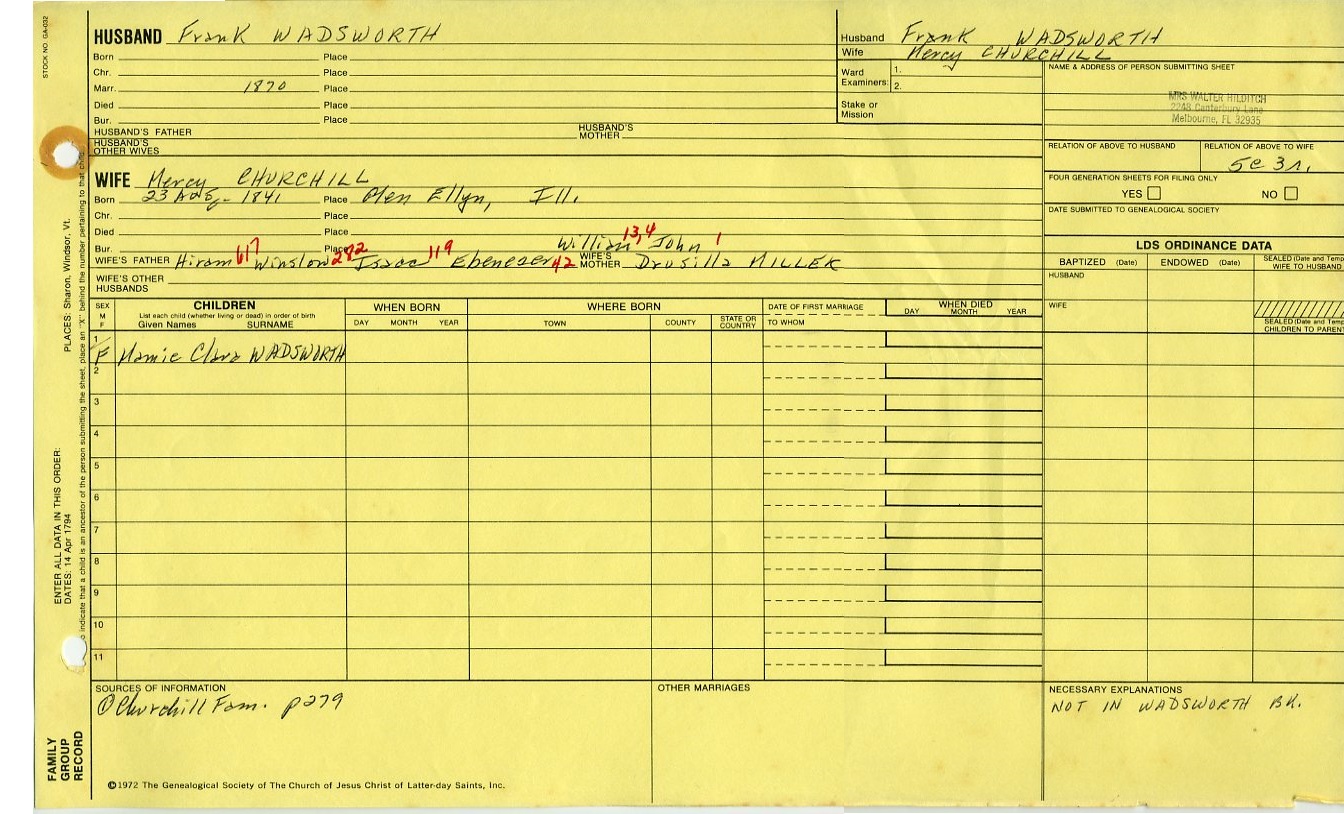 STOCK NO. GA-032
HUSBAND Frank WADSWORTH
Born Place
Chr. Place
Marr. 1870 Place
Died Place
Bur. Place
HUSBAND'S FATHER HUSBAND'S MOTHER
HUSBAND'S OTHER WIVES
Husband Frank WADSWORTH
Wife Mercy CHURCHILL
Ward Examiners: 1.
2.
Stake or Mission
NAME & ADDRESS OF PERSON SUBMITTING SHEET
MRS WALTER HILDITCH
2248 Canterbury Lane
Melbourne, FL 32935
RELATION OF ABOVE TO HUSBAND RELATION OF ABOVE TO WIFE
5c 3r.
FOUR GENERATION SHEETS FOR FILING ONLY
YES NO
DATE SUBMITTED TO GENEALOGICAL SOCIETY
WIFE Mercy CHURCHILL
Born 23 Aug - 1841 Place Glen Ellyn, Ill.
Chr. Place
Died Place
Bur. Place William 13,4 John 1
WIFE'S FATHER Hiram 617 Winslow 282 Isaac 119 Ebenezer 42 WIFE'S MOTHER Drusilla MILLER
WIFE'S OTHER HUSBANDS
LDS ORDINANCE DATA
BAPTIZED (Date) ENDOWED (Date) SEALED (Date and Temp
WIFE TO HUSBAND
HUSBAND
WIFE
SEALED (Date and Temp
CHILDREN TO PAREN
SEX
M
F
CHILDREN
List each child (whether living or dead) in order of birth
Given Names SURNAME
WHEN BORN
DAY MONTH YEAR
WHERE BORN
TOWN COUNTY STATE OR COUNTRY
DATE OF FIRST MARRIAGE
TO WHOM
WHEN DIED
DAY MONTH YEAR
1
F Mamie Clara WADSWORTH
2
3
4
5
6
7
8
9
10
11
SOURCES OF INFORMATION
① Churchill Fam. p279
OTHER MARRIAGES
NECESSARY EXPLANATIONS
NOT IN WADSWORTH BK.
©1972 The Genealogical Society of The Church of Jesus Christ of Latter-day Saints, Inc.
FAMILY
GROUP
RECORD
ENTER ALL DATA IN THIS ORDER:
DATES: 14 Apr 1794 PLACES: Sharon, Windsor, Vt.
o indicate that a child is an ancestor of the person submitting the sheet, place an "X" behind the number pertaining to that